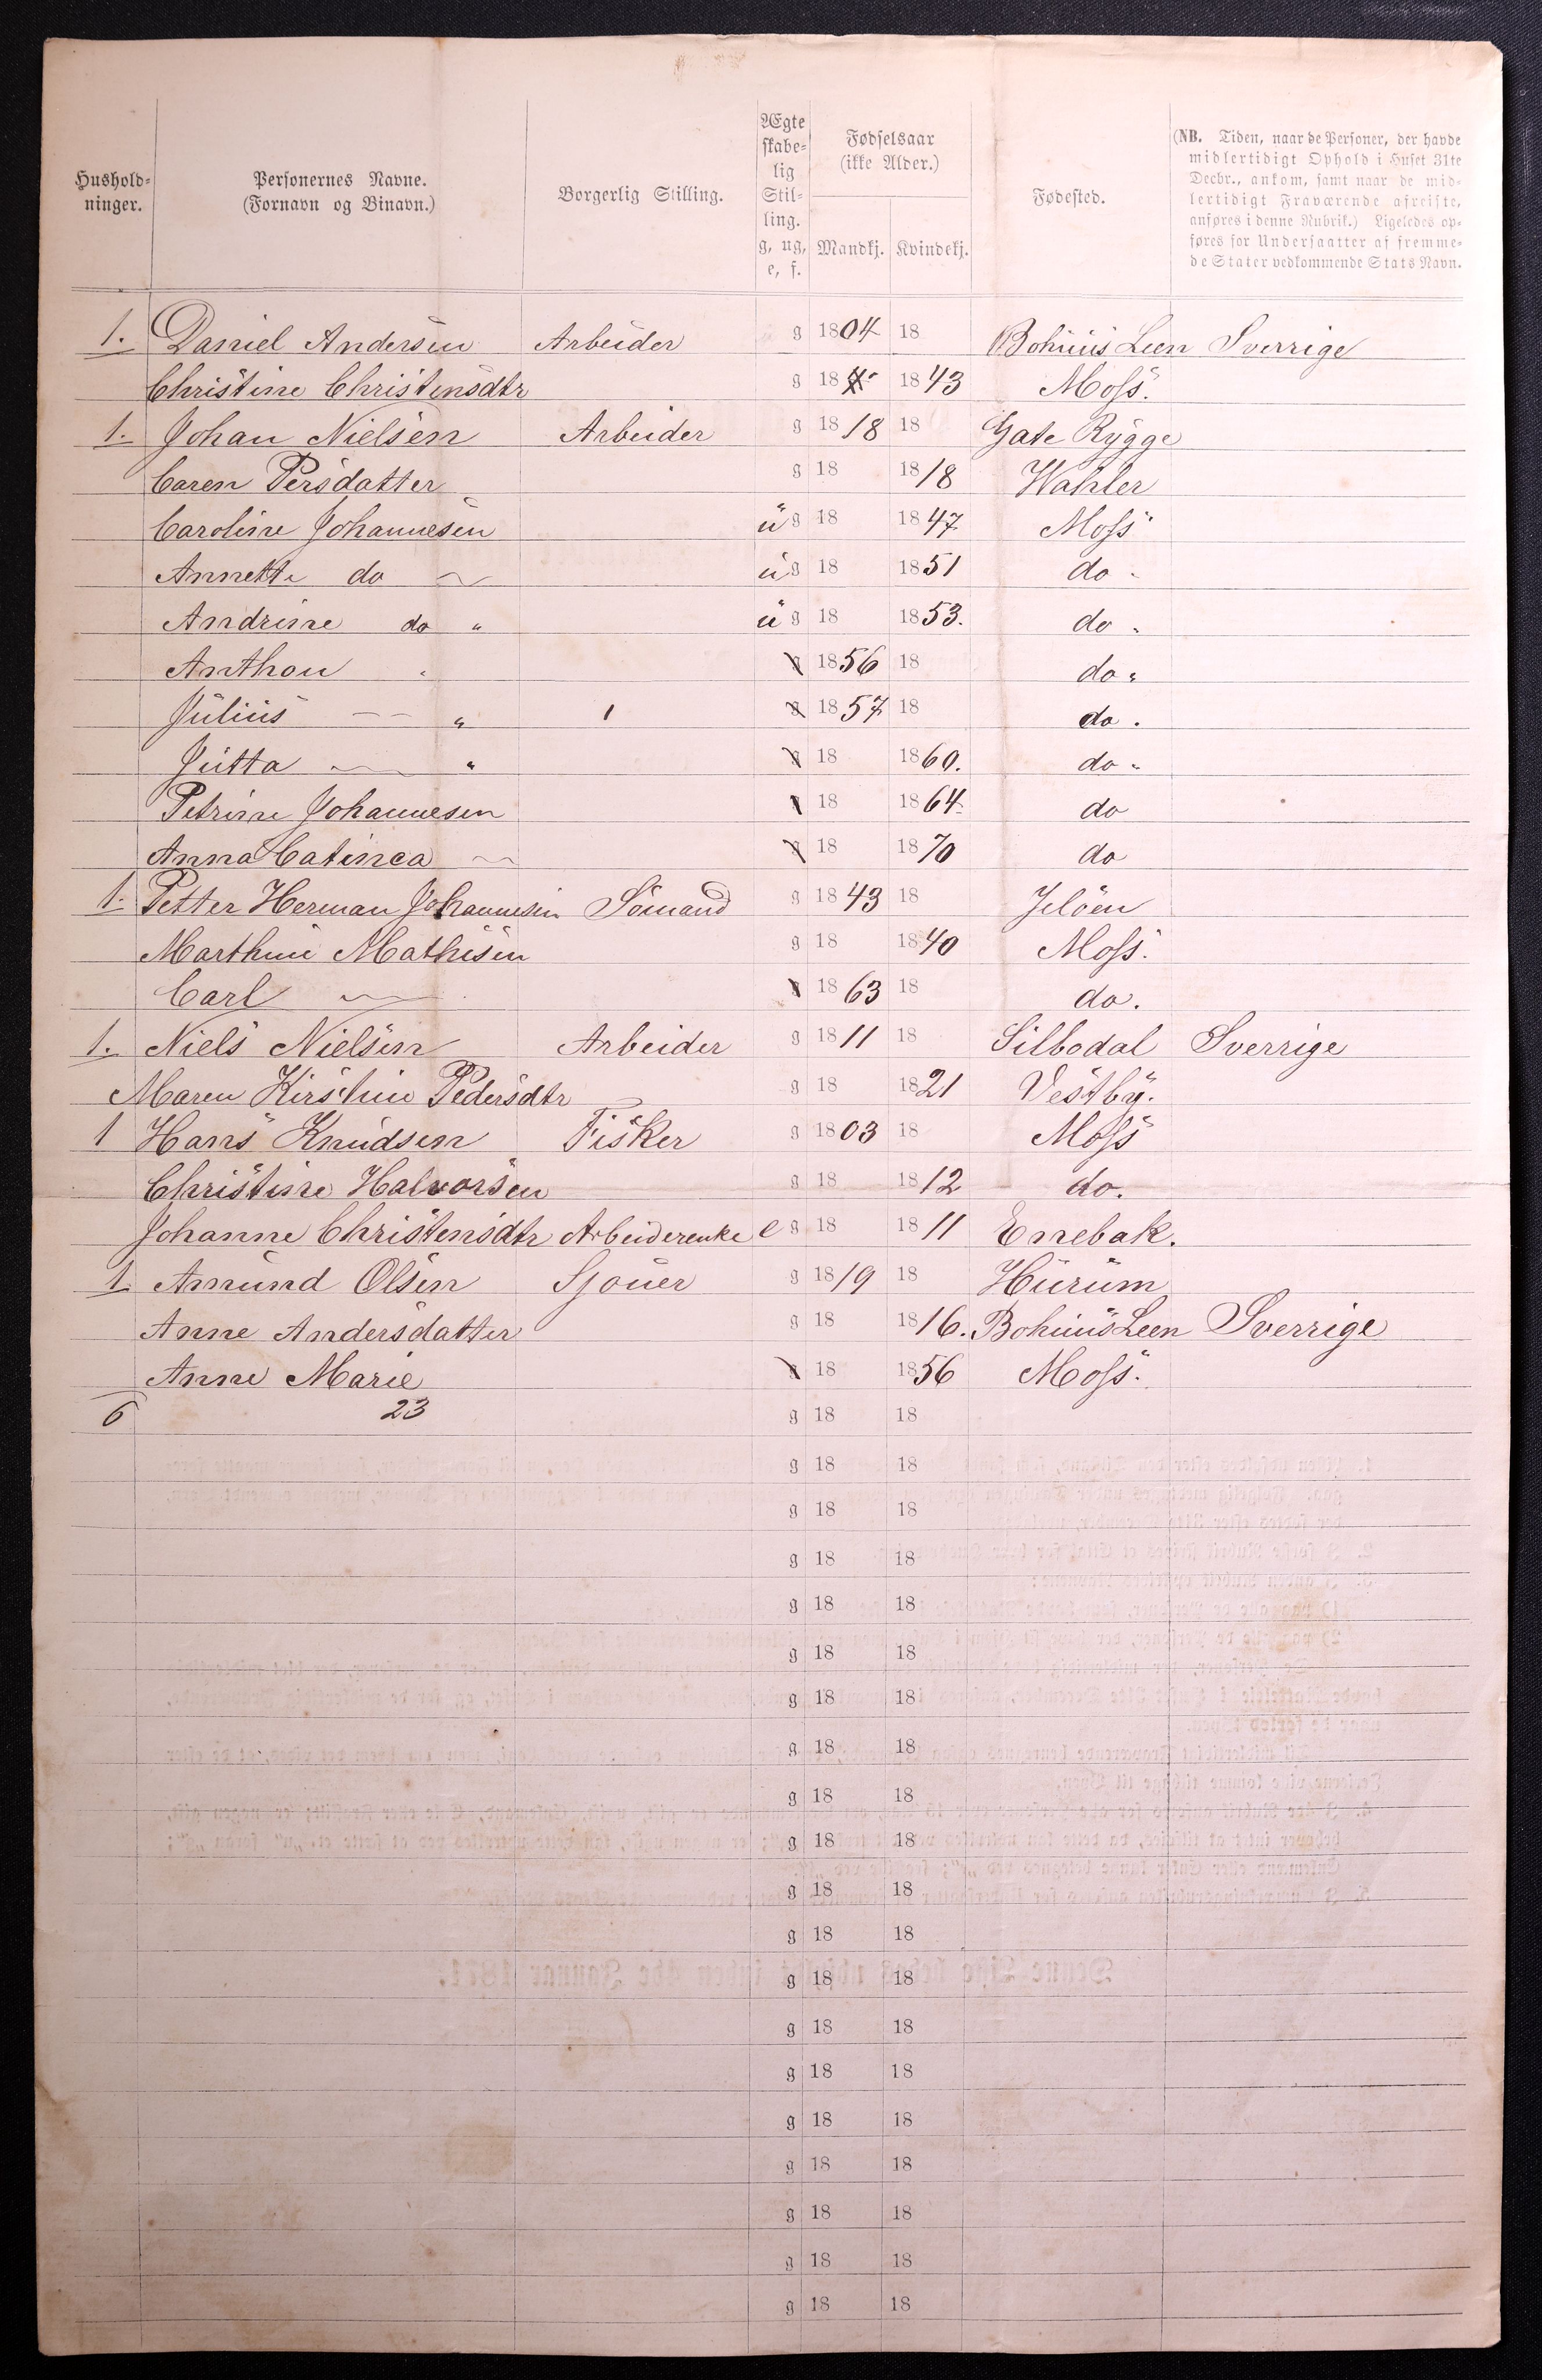 Hushold-
ninger.
Personernes Navne.
(Fornavn og Binavn.)
Borgerlig Stilling.
Ægte
skabe-
lig
Stil-
ling.
g, ug,
e, f.
Fødselsaar
(ikke Alder.)
Mandkj. Kvindekj.
Fødested.
(NB. Tiden, naar de Personer, der havde
midlertidigt Ophold i Huset 31te
Decbr., ankom, samt naar de mid-
lertidigt Fraværende afreiste,
anføres i denne Rubrik.) Ligeledes op-
føres for Undersaatter af fremme-
de Stater vedkommende Stats Navn.
1. Daniel Andersen Arbeider g 1804 18 Bohuus Leen Sverrige
Christine Christensdtr g 18 1843 Moss.
1. Johan Nielsen Arbeider g 1818 18 Gate Rygge
Caren Persdatter g 18 1818 Wahler
Caroline Johannesen u g 18 1847 Moss
Annette do u g 18 1851 do
Andrine do " u g 18 1853. do
Anthon " g 1856 18 do "
Julius — " 1 g 1857 18 do.
Jutta — " g 18 1860. do "
Petrine Johannesen g 18 1864 do
Anna Catinca — g 18 1870 do
1. Petter Herman Johannesen Sömand g 1843 18 Jelöen
Marthine Mathisen g 18 1840 Moss.
Carl — g 1863 18 do.
1. Niels Nielsen Arbeider g 1811 18 Silbodal Sverrige
Maren Kirstine Pedersdtr g 18 1821 Vestby.
1 Hans Knudsen Fisker g 1803 18 Moss
Christine Halvorsen g 18 1812 do.
Johanne Christensdtr Arbeiderenke e g 18 1811 Enebak.
1. Amund Olsen Sjouer g 1819 18 Hurum
Anne Andersdatter g 18 1816. Bohuus Leen Sverrige
Anne Marie g 18 1856 Moss.
6 23 g 18 18
g 18 18
g 18 18
g 18 18
g 18 18
g 18 18
g 18 18
g 18 18
g 18 18
g 18 18
g 18 18
g 18 18
g 18 18
g 18 18
g 18 18
g 18 18
g 18 18
g 18 18
g 18 18
g 18 18